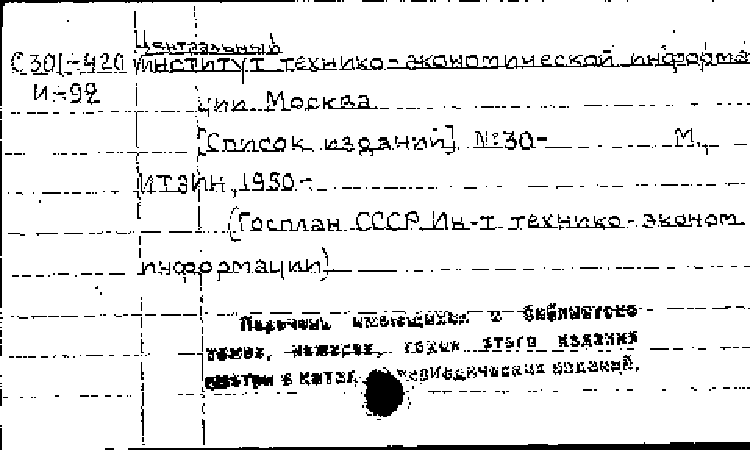 Центральный
С301-420 институт технико-экономической информа
И-92
ции. Москва
[Список изданий] №30- М.,
ИТЭИН, 1950-
(Госплан СССР. Ин-т технико-эконом.
информации)
Перечень имеющихся в библиотеке
томов, номеров, годов этого издания
смотри в катал. периодических изданий.